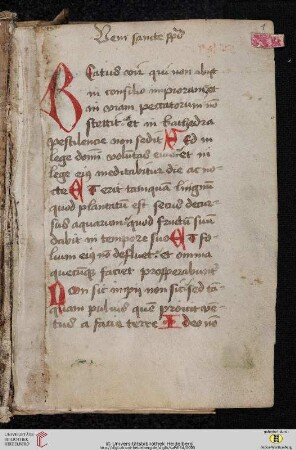 Veni sancte spūs
Beatus vir qui non abijt
in consilio impiorum et
in viam peccatorum nō
stettit et in kathedra
pestilencie non sedit Sed in
lege domī voluntas eius et in
lege eius meditabitur die ac no-
cte Et erit tamquam lingnum
quod plantatum est secus decur-
sus aquarum quod fructum suū
dabit in tempore suo Et fo-
lium eius nō defluet et omnia
quecumque faciet prosperabuntur
Non sic impii non sic sed tā
quam puluis quē proicit ven-
tus a facie terre Ideo nō
UNIVERSITÄTS-
BIBLIOTHEK
HEIDELBERG
© Universitätsbibliothek Heidelberg